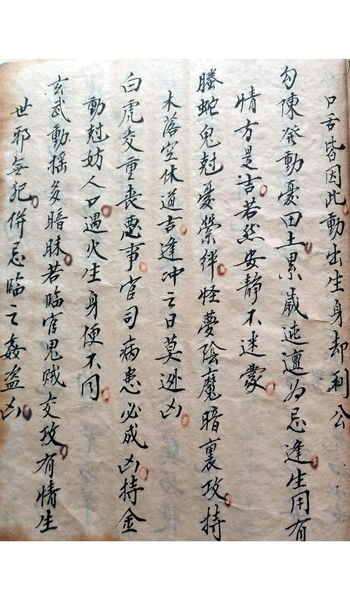 口舌皆因此動出生身却利公
勾陳發動憂田土累歲迍邅為忌逢生用有
情方是吉若然安靜不迷蒙
螣蛇鬼尅憂縈絆怪夢陰魔暗裏攻持
木落空休道吉逢冲之日莫逃凶
白虎交重喪惡事官司病患必成凶持金
動尅妨人口遇火生身便不同
玄武動搖多暗昧若臨官鬼賊交攻有情生
世邪無犯併忌臨之姦盜凶